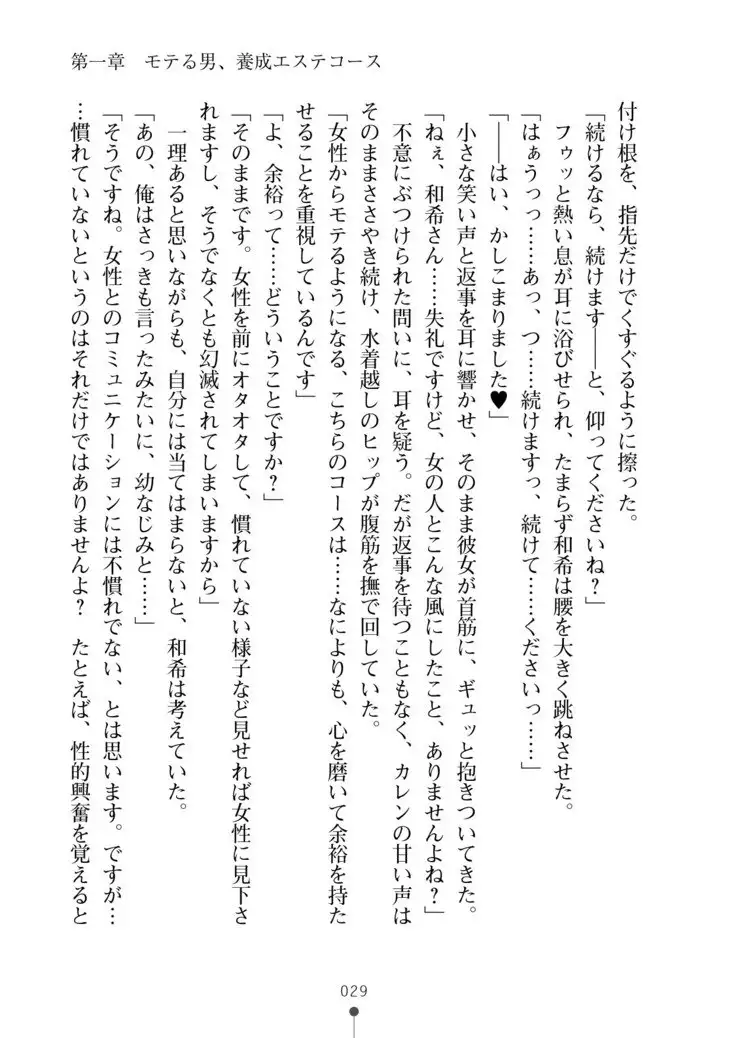 第一章　モテる男、養成エステコース
付け根を、指先だけでくすぐるように擦った。
「続けるなら、続けます――と、仰ってくださいね？」
　フゥッと熱い息が耳に浴びせられ、たまらず和希は腰を大きく跳ねさせた。
「はぁうっっ……あっ、つ……続けますっ、続けて……くださいっ……」
「――はい、かしこまりました♥」
　小さな笑い声と返事を耳に響かせ、そのまま彼女が首筋に、ギュッと抱きついてきた。
「ねぇ、和希さん……失礼ですけど、女の人とこんな風にしたこと、ありませんよね？」
　不意にぶつけられた問いに、耳を疑う。だが返事を待つこともなく、カレンの甘い声は
そのままささやき続け、水着越しのヒップが腹筋を撫で回していた。
「女性からモテるようになる、こちらのコースは……なによりも、心を磨いて余裕を持た
せることを重視しているんです」
「よ、余裕って……どういうことですか？」
「そのままです。女性を前にオタオタして、慣れていない様子など見せれば女性に見下さ
れますし、そうでなくとも幻滅されてしまいますから」
　一理あると思いながらも、自分には当てはまらないと、和希は考えていた。
「あの、俺はさっきも言ったみたいに、幼なじみと……」
「そうですね。女性とのコミュニケーションには不慣れでない、とは思います。ですが…
…慣れていないというのはそれだけではありませんよ？　たとえば、性的興奮を覚えると
029